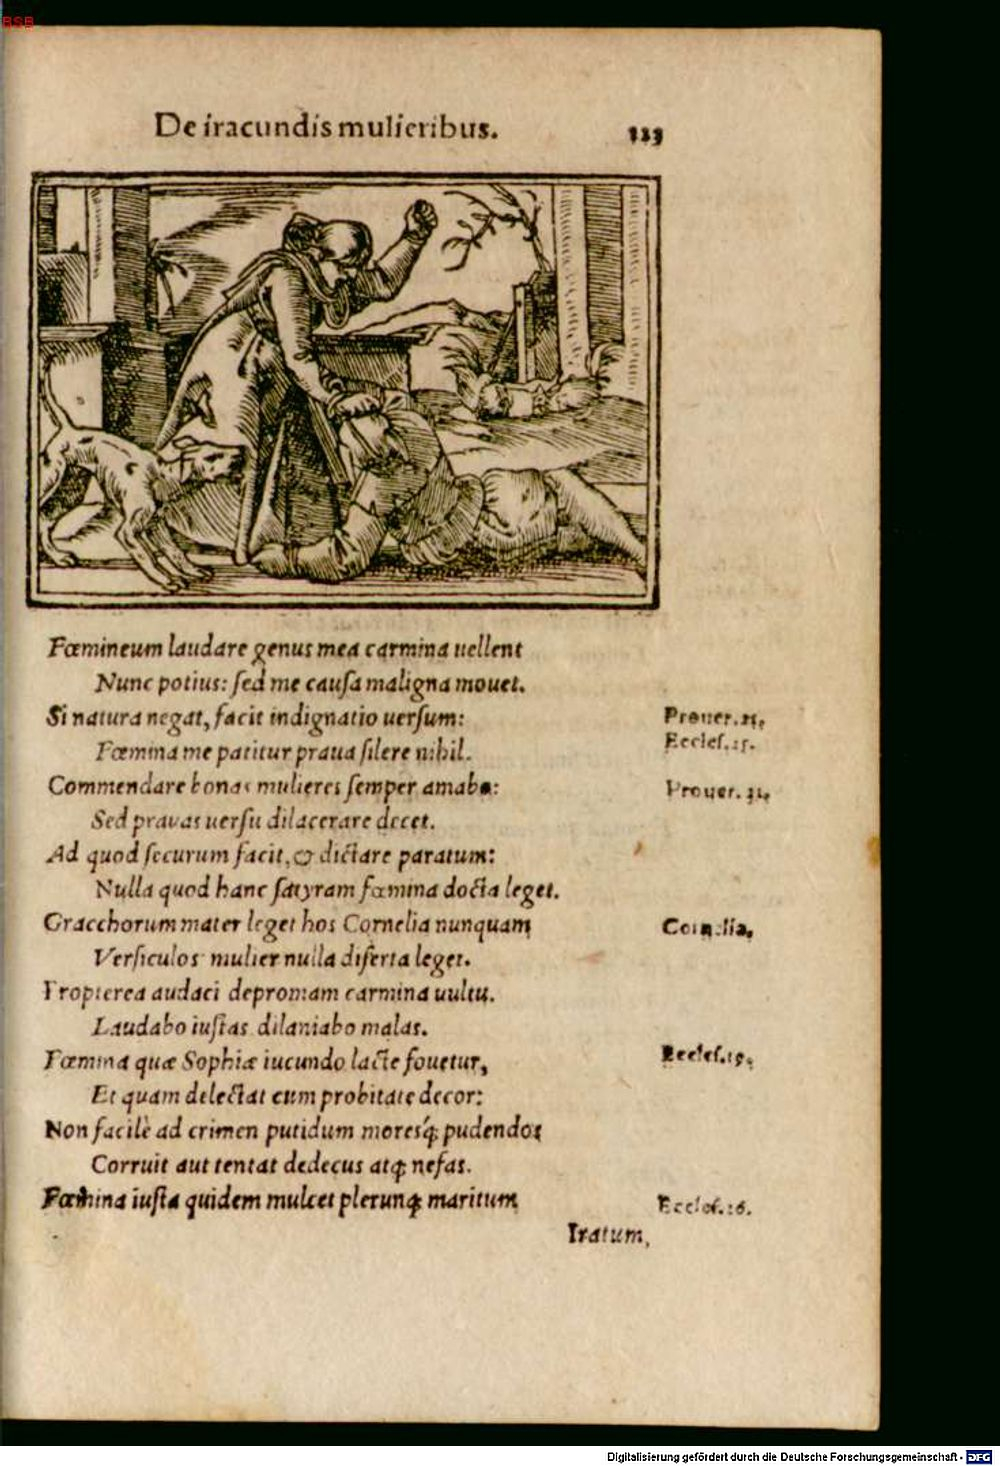 BSB
De iracundis mulieribus.
Fœmineum laudare genus mea carmina uellent
Nunc potius: ſed me cauſa maligna mouet.
Si natura negat, facit indignatio uerſum:
Prouer. 21.
Fœmina me patitur praua ſilere nihil.
Eccleſ. 25.
Commendare bonas mulieres ſemper amabo:
Prouer. 31.
Sed prauas uerſu dilacerare decet.
Ad quod ſecurum facit, & dictare paratum:
Nulla quod hanc ſatyram fœmina docta leget.
Gracchorum mater leget hos Cornelia nunquam
Cornelia.
Verſiculos mulier nulla diſerta leget.
Propterea audaci depromam carmina uultu.
Laudabo iuſtas dilaniabo malas.
Fœmina quæ Sophiæ iucundo lacte fouetur,
Eccleſ. 19.
Et quam delectat cum probitate decor:
Non facilè ad crimen putidum moresq́; pudendos
Corruit aut tentat dedecus atq; nefas.
Fœmina iuſta quidem mulcet plerunq; maritum
Eccleſ. 26.
Iratum,
Digitalisierung gefördert durch die Deutsche Forschungsgemeinschaft - DFG